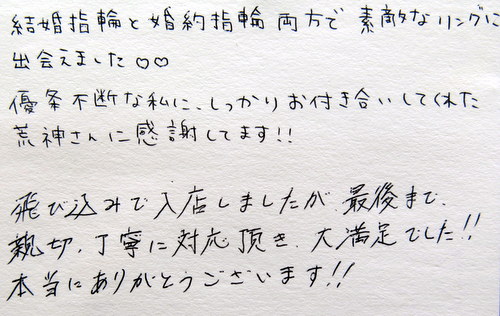 結婚指輪と婚約指輪両方で 素敵なリングに
出会えました♡♡
優柔不断な私に、しっかりお付き合いしてくれた
荒神さんに感謝してます!!
飛び込みで入店しましたが、最後まで、
親切、丁寧に対応頂き、大満足でした!!
本当にありがとうございます!!